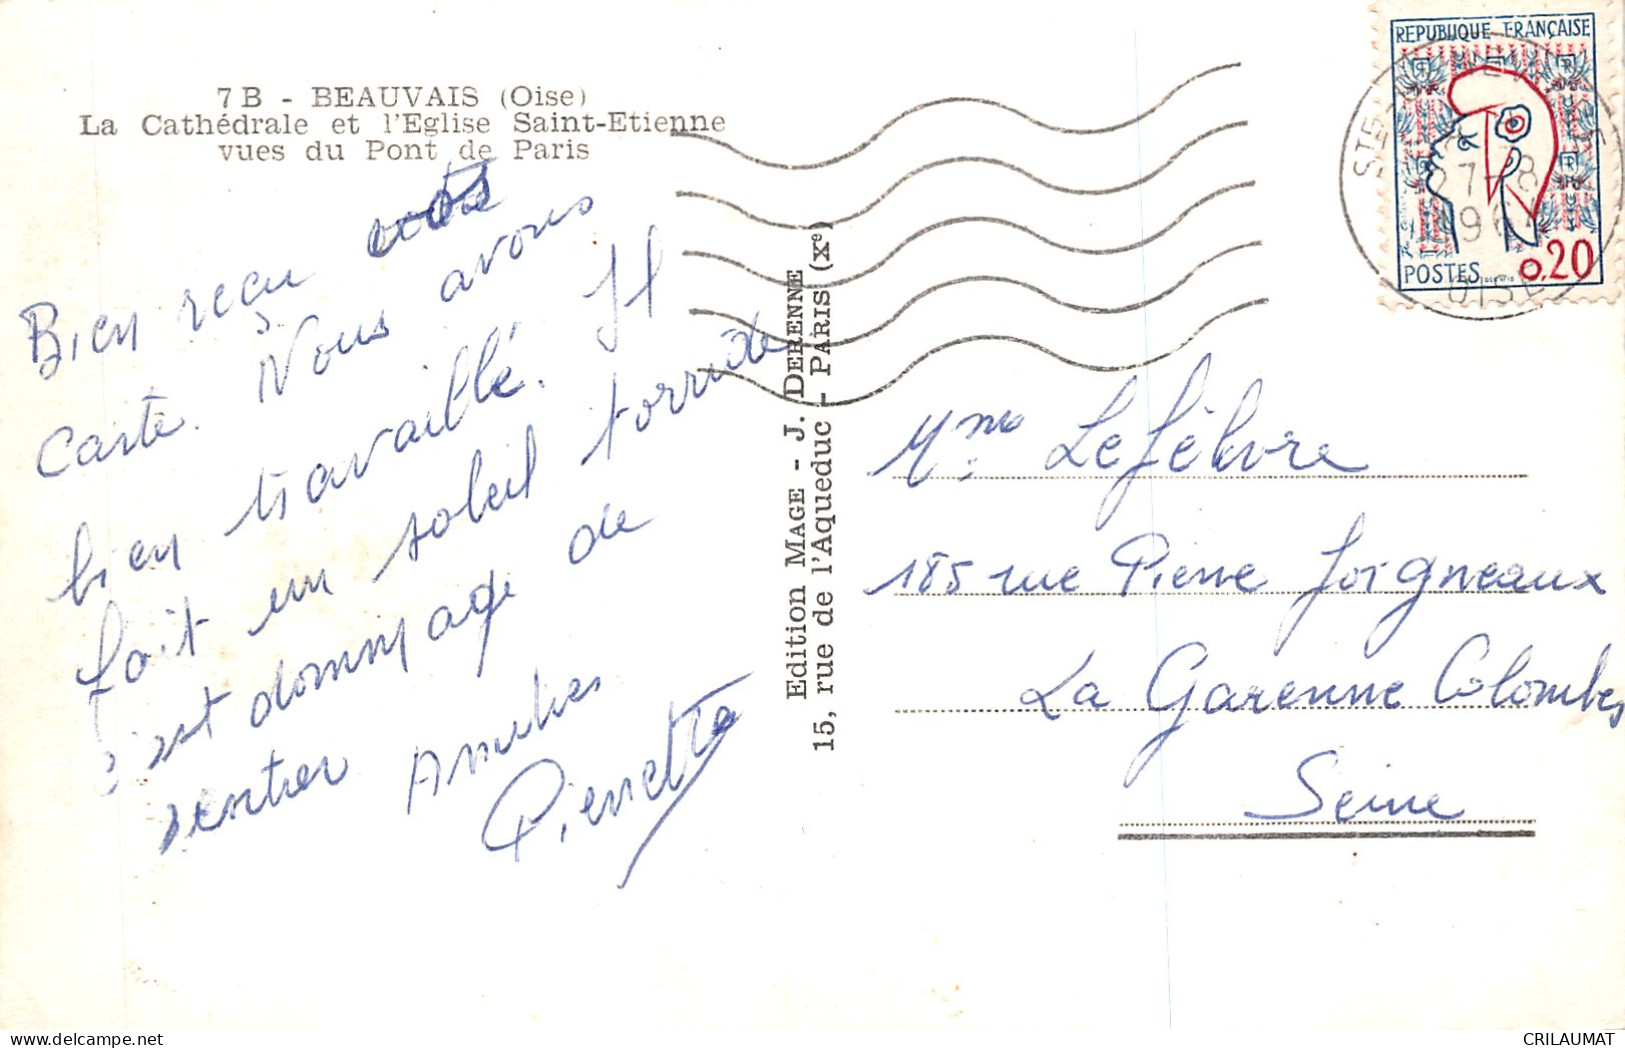 7 B - BEAUVAIS (Oise)
La Cathédrale et l'Eglise Saint-Etienne
vues du Pont de Paris
Bien reçu votre
carte. Nous avons
bien travaillé. Il
fait un soleil torride
c'est dommage de
rentrer Amitiés
Pierrette
Edition MAGE - J. DERENNE
15, rue de l'Aqueduc - PARIS (Xe)
REPUBLIQUE FRANÇAISE
POSTES
0,20
27-8
OISE
Mme Lefèbvre
185 rue Pierre Joigneaux
La Garenne Colombes
Seine
CRILAUMAT